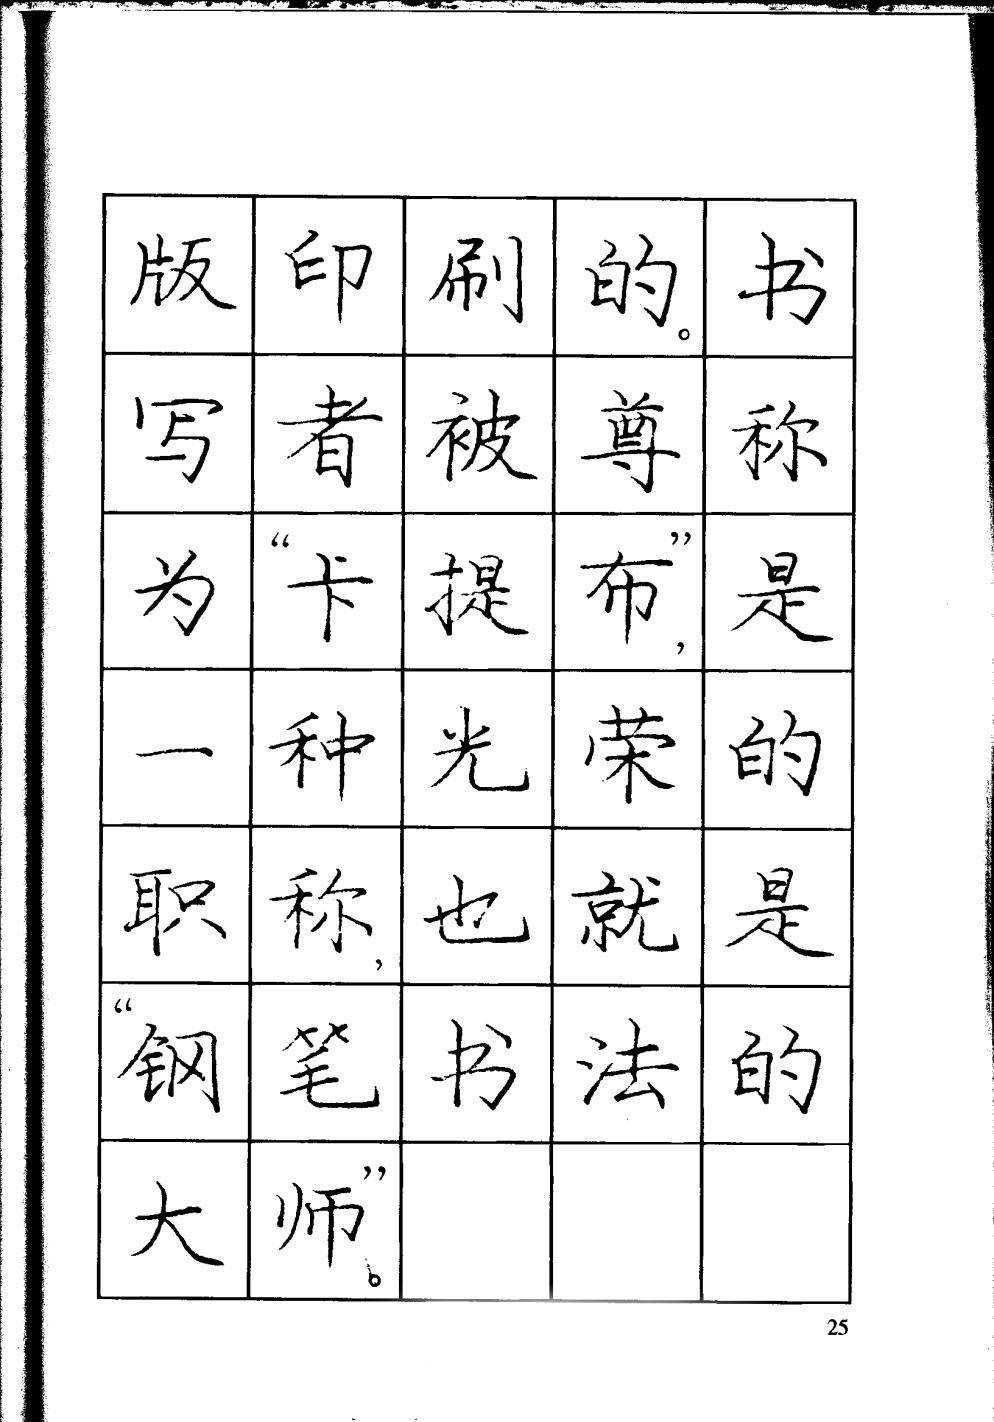 版印刷的。书
写者被尊称
为“卡提布”，是
一种光荣的
职称，也就是
“钢笔书法的
大师”。
25